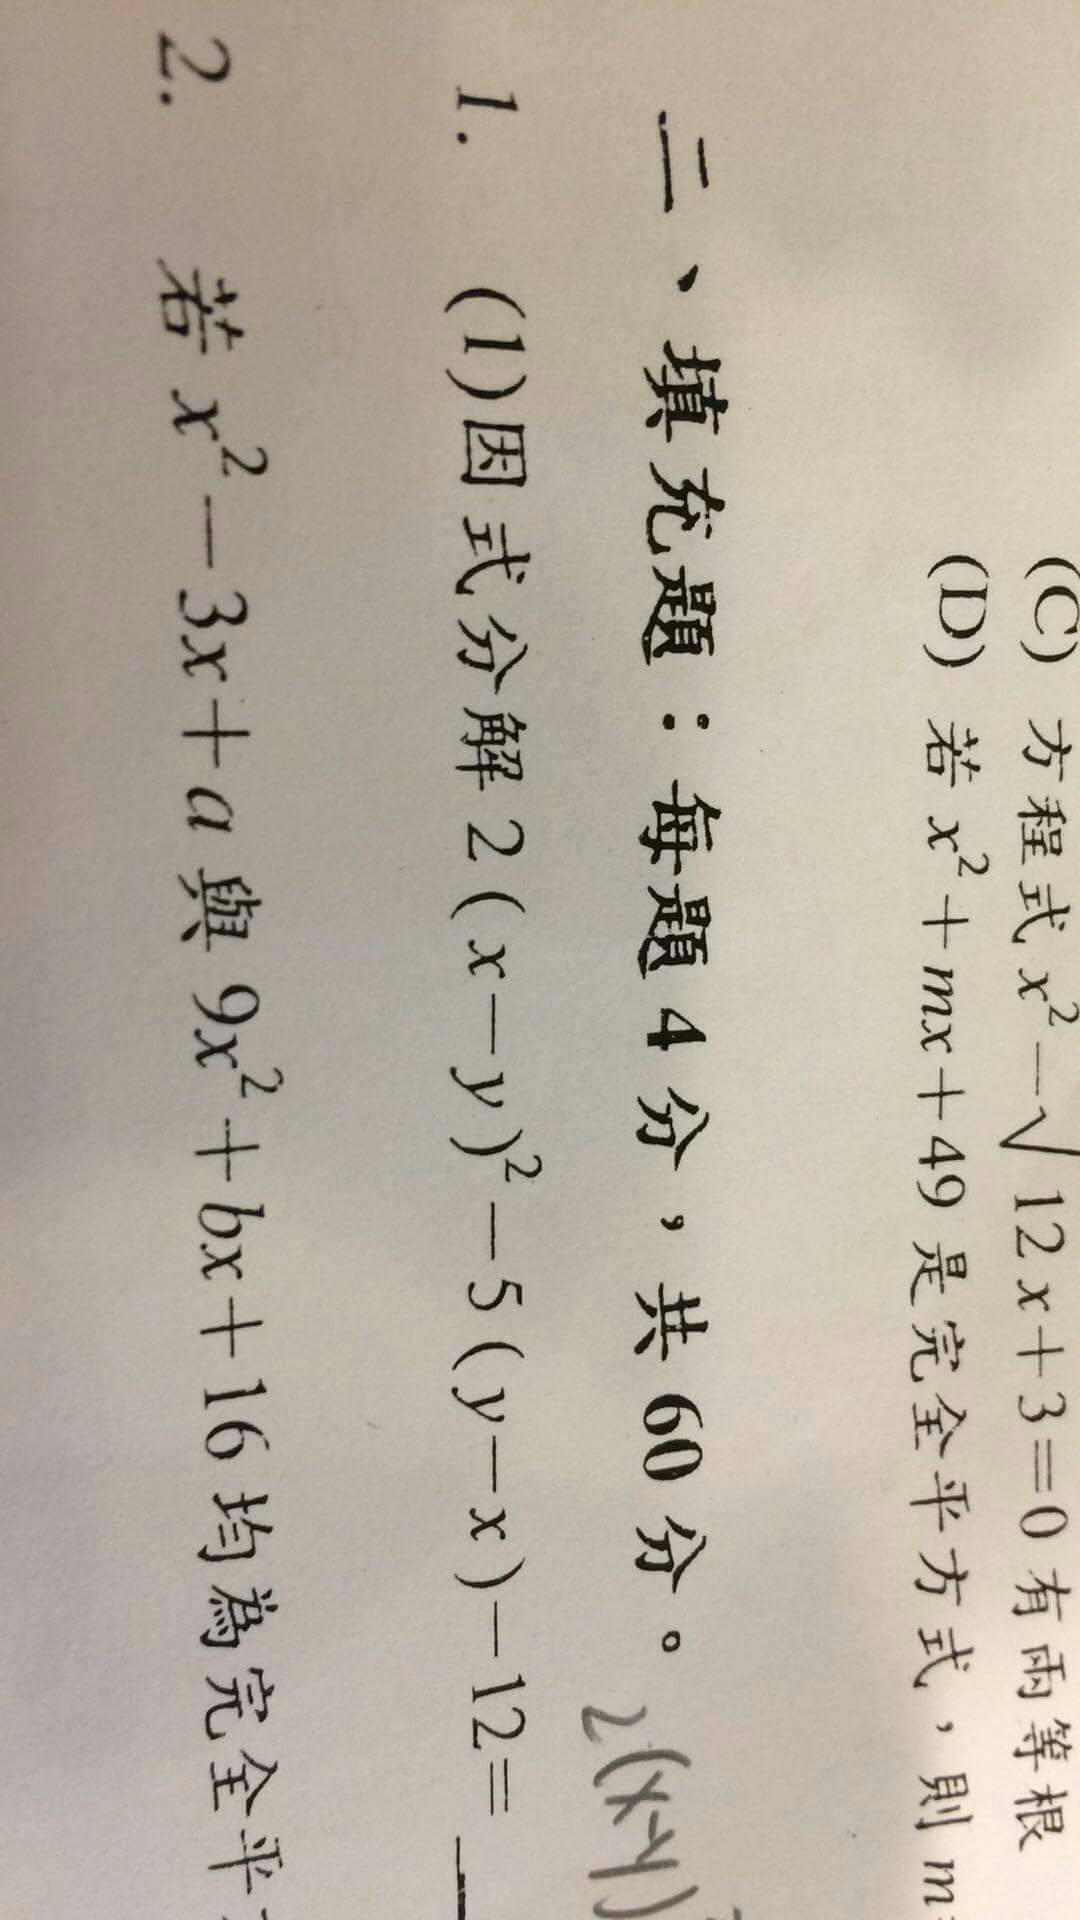 (C) 方程式 x²－√12 x＋3＝0 有兩等根
(D) 若 x²＋mx＋49 是完全平方式，則 m
二、填充題：每題 4 分，共 60 分。
2(x-y)
1. (1)因式分解 2(x－y)²－5(y－x)－12＝
2. 若 x²－3x＋a 與 9x²＋bx＋16 均為完全平